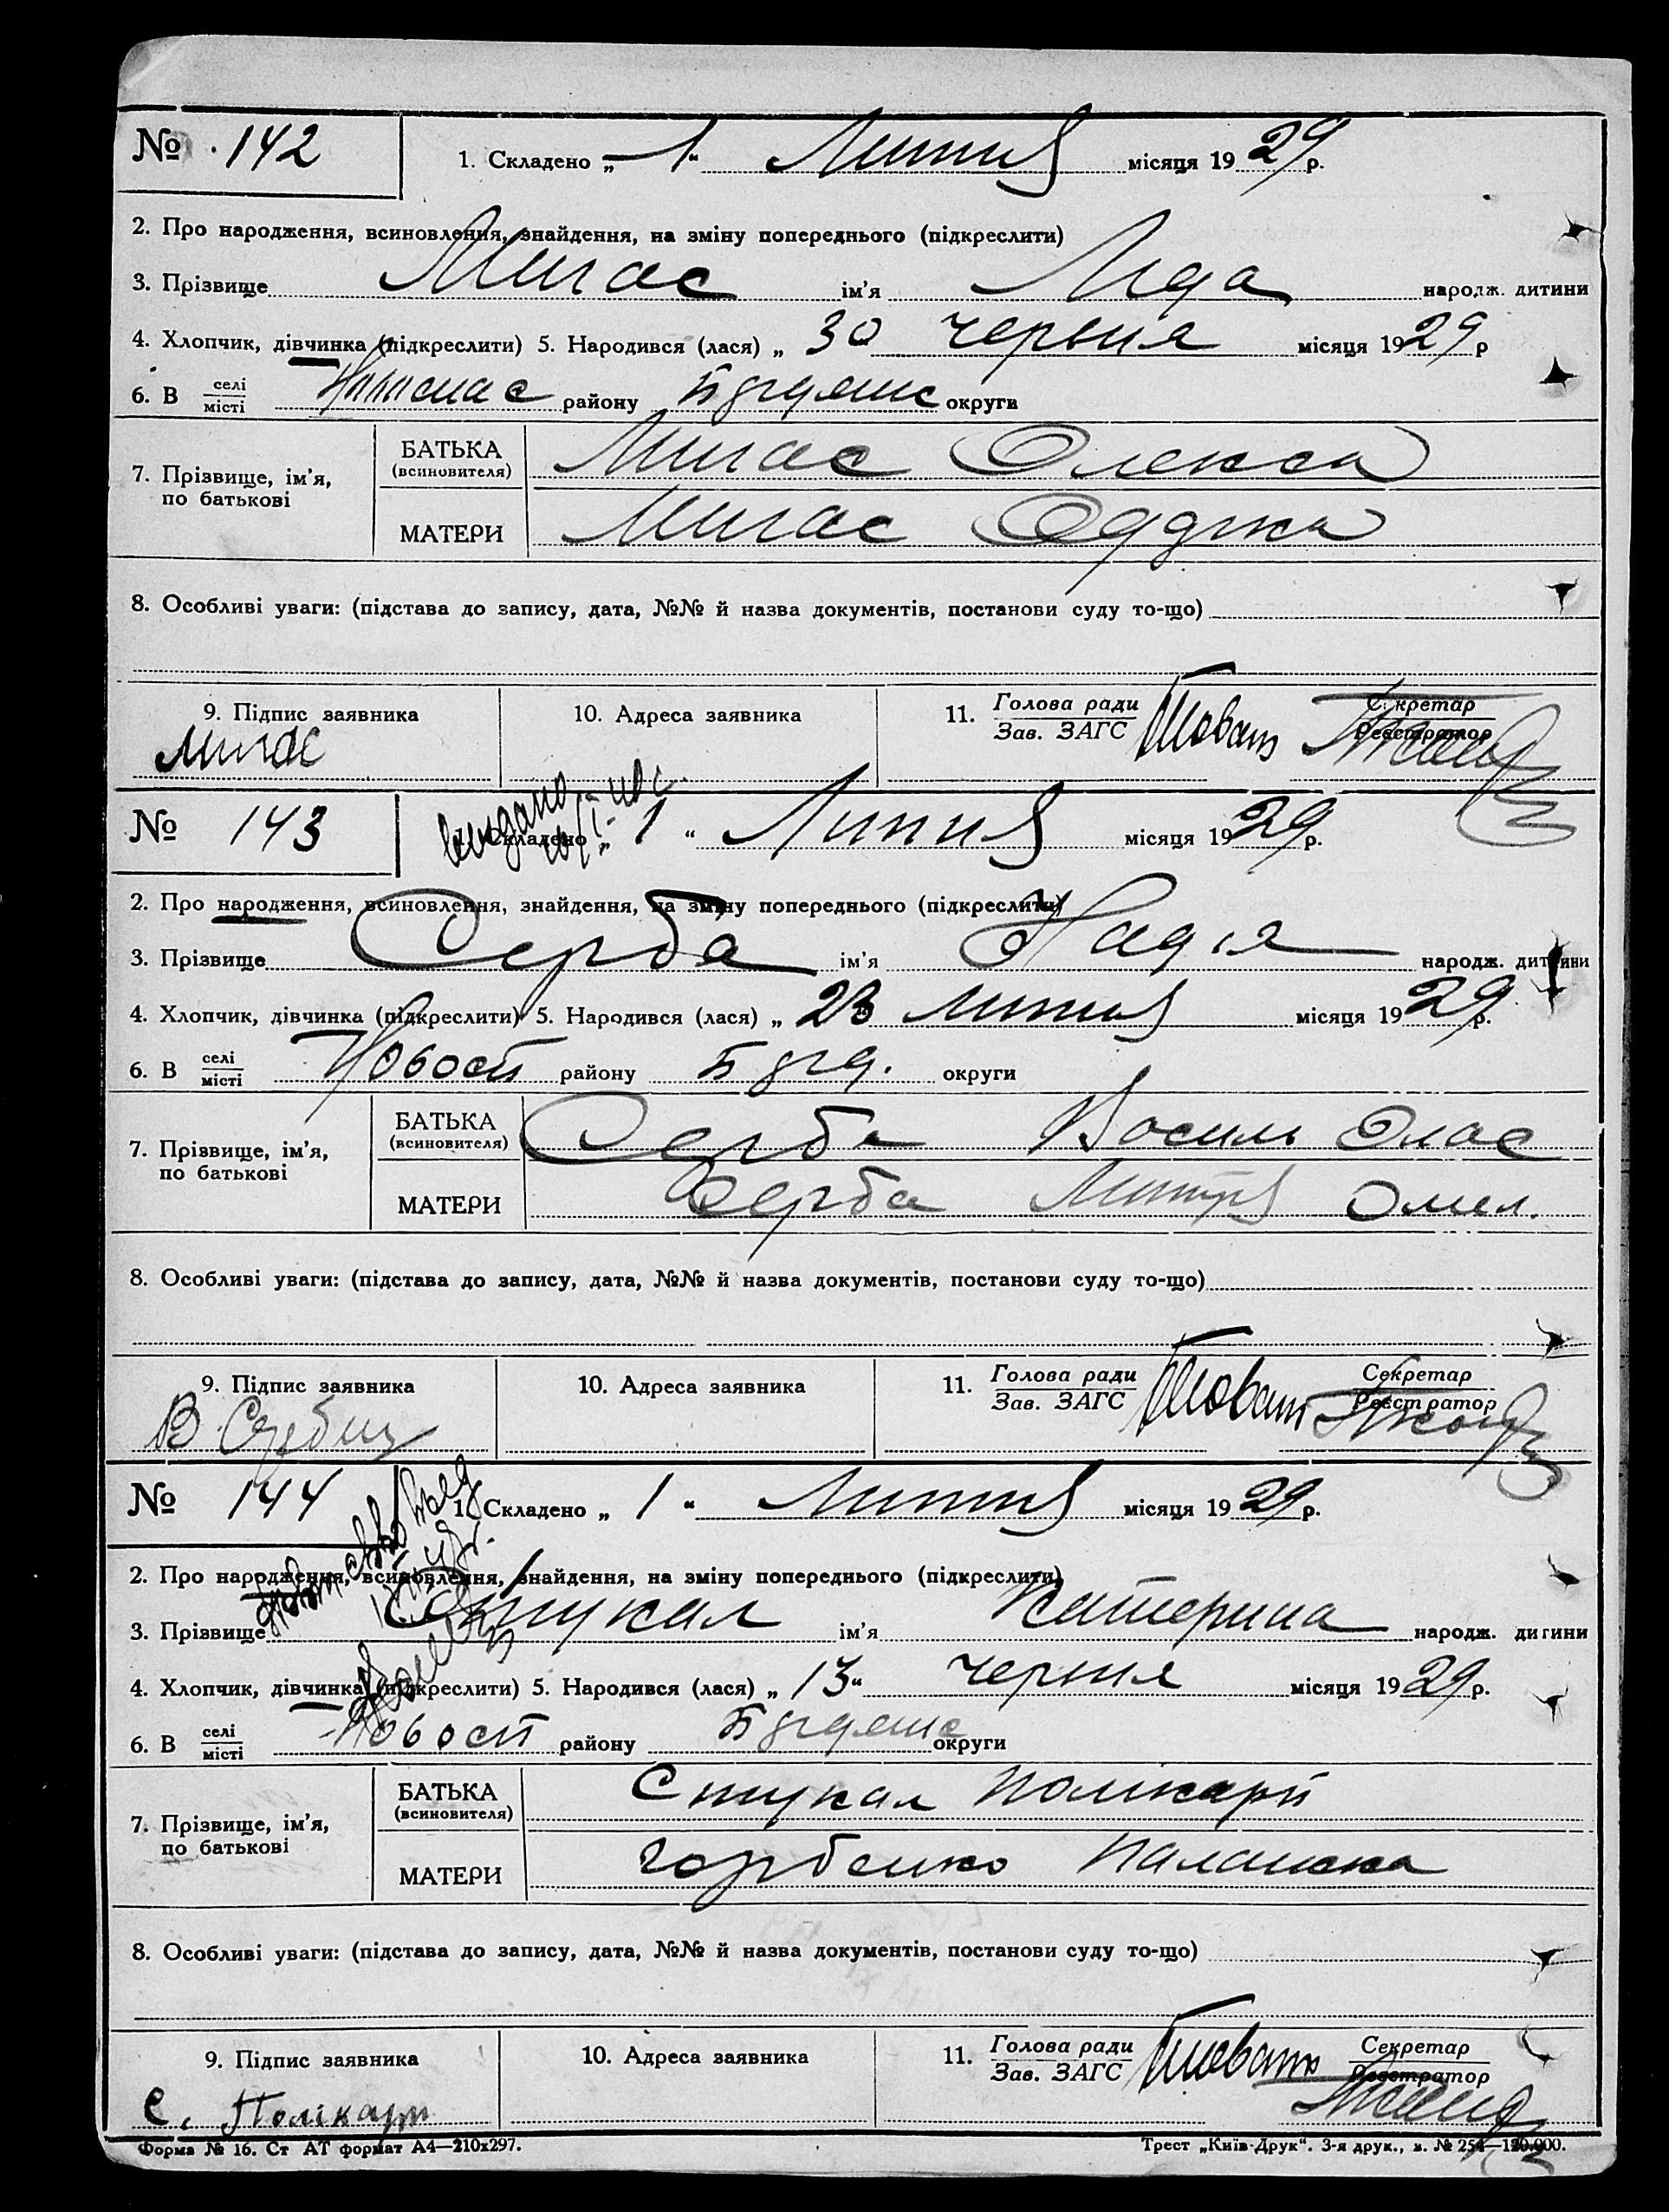 № 142
1. Складено „ 1 “ Липня місяця 19 29 р.
2. Про народження, всиновлення, знайдення, на зміну попереднього (підкреслити)
3. Прізвище Мигас ім’я Лида народж. дитини
4. Хлопчик, дівчинка (підкреслити) 5. Народився (лася) „ 30 червня місяця 19 29 р
6. В селі місті району округи
7. Прізвище, ім’я, по батькові
БАТЬКА (всиновителя) Мигас Олекса
МАТЕРИ Мигас
8. Особливі уваги: (підстава до запису, дата, №№ й назва документів, постанови суду то-що)
9. Підпис заявника 10. Адреса заявника 11. Голова ради Зав. ЗАГС Секретар Реєстратор
Мигас
№ 143
1. Складено „ 1 “ Липня місяця 19 29 р.
2. Про народження, всиновлення, знайдення, на зміну попереднього (підкреслити)
3. Прізвище Серба ім’я Надія народж. дитини
4. Хлопчик, дівчинка (підкреслити) 5. Народився (лася) „ 23 липня місяця 19 29 р.
6. В селі місті Новост району округи
7. Прізвище, ім’я, по батькові
БАТЬКА (всиновителя) Серба Василь
МАТЕРИ Серба Омел.
8. Особливі уваги: (підстава до запису, дата, №№ й назва документів, постанови суду то-що)
9. Підпис заявника 10. Адреса заявника 11. Голова ради Зав. ЗАГС Секретар Реєстратор
№ 144
1. Складено „ 1 “ Липня місяця 19 29 р.
2. Про народження, всиновлення, знайдення, на зміну попереднього (підкреслити)
3. Прізвище Стукал ім’я Катерина народж. дитини
4. Хлопчик, дівчинка (підкреслити) 5. Народився (лася) „ 13 “ червня місяця 19 29 р.
6. В селі місті Новост району округи
7. Прізвище, ім’я, по батькові
БАТЬКА (всиновителя) Стукал Полікарп
МАТЕРИ Горбенко Палашка
8. Особливі уваги: (підстава до запису, дата, №№ й назва документів, постанови суду то-що)
9. Підпис заявника 10. Адреса заявника 11. Голова ради Зав. ЗАГС Секретар Реєстратор
С. Полікарп
Форма № 16. Ст АТ формат А4—210х297. Трест „Київ-Друк“. 3-я друк., з. № 254—